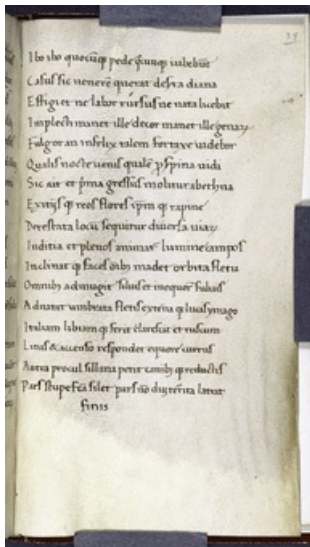 Ibo ibo quocūq; pede q̄cunq; iubebit
Casus sic venerē querat desta diana
Effigiet ne labor rursus ne nata licebit
Implecti manet ille decor manet ille genaꝝ
Fulgor an infelix talem fortaxe uidebor
Qualis nocte uenis qualē ꝑ spina uidi
Sic ait et prima gressus molitur abethna
Exitijs q; reos flores ipm̄ q; rapine
Detestata locū sequitur diuersa uiaꝝ
Inditia et plenos animat lumine campos
Inclinat q; faces oīb; madet orbita fletu
Omnib; admugit sulcis
Adnatat umbrata fletis extēna q; lucis ymago
Italiam libiam q; ferit clarescit et ruscum
Litus & accenso resplendet equore currus
Antra procul sillana petit canib; q; reductis
Pars stupefcā silet pars nō dū exterita latrat
finis